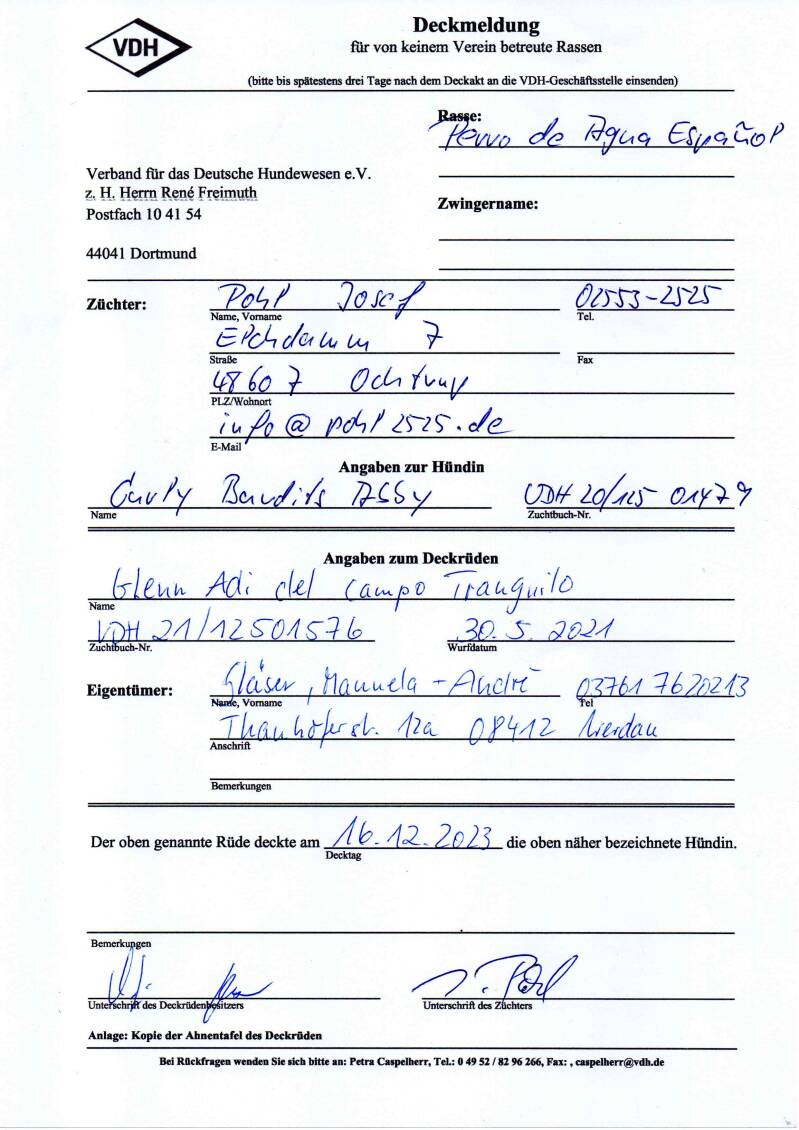 VDH
Deckmeldung
für von keinem Verein betreute Rassen
(bitte bis spätestens drei Tage nach dem Deckakt an die VDH-Geschäftsstelle einsenden)
Rasse:
Perro de Agua Español
Verband für das Deutsche Hundewesen e.V.
z. H. Herrn René Freimuth
Postfach 10 41 54
Zwingername:
44041 Dortmund
Züchter: Pohl Josef 02553-2525
Name, Vorname Tel.
Elchdamm 7
Straße Fax
48607 Ochtrup
PLZ/Wohnort
info@pohl2525.de
E-Mail
Angaben zur Hündin
Curly Bandits Assy VDH 20/125 01479
Name Zuchtbuch-Nr.
Angaben zum Deckrüden
Glenn Adi del Campo Tranquilo
Name
VDH 21/12501576 30.5.2021
Zuchtbuch-Nr. Wurfdatum
Eigentümer: Gläser, Manuela - André 03761 7620213
Name, Vorname Tel
Thanhöferst. 12a 08412 Werdau
Anschrift
Bemerkungen
Der oben genannte Rüde deckte am 16.12.2023 die oben näher bezeichnete Hündin.
Decktag
Bemerkungen
J. Pohl
Unterschrift des Deckrüdenbesitzers Unterschrift des Züchters
Anlage: Kopie der Ahnentafel des Deckrüden
Bei Rückfragen wenden Sie sich bitte an: Petra Caspelherr, Tel.: 0 49 52 / 82 96 266, Fax: , caspelherr@vdh.de